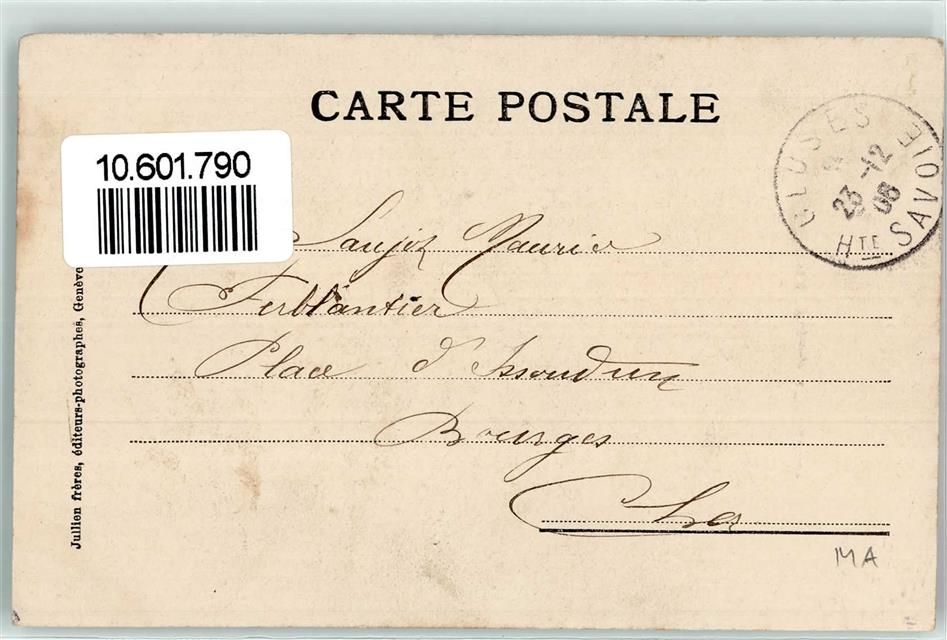 CARTE POSTALE
10.601.790
CLUSES
23 -12
05
HTE SAVOIE
Maurice
Ferblantier
Place d'Issoudun
Bourges
Cher
Jullien frères, éditeurs-photographes, Genève
MA